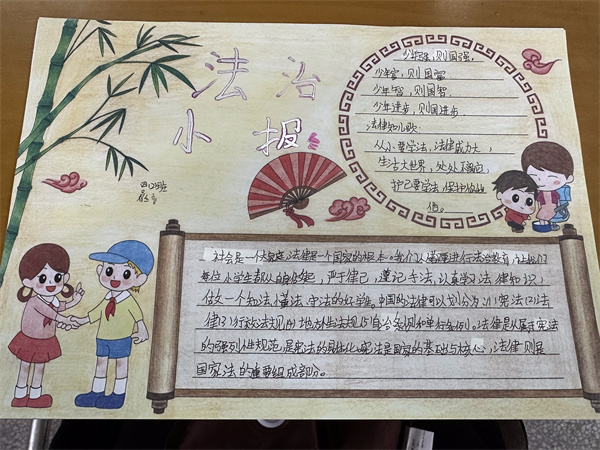 法治
小报
少年强,则国强,
少年富,则国富
少年智,则国智,
少年进步,则国进步.
法律知儿歌:
从小要学法,法律威力大,
生活大世界,处处不离它,
护己要学法,保护你我
他。
社会是一个大家庭,法律是一个国家的根本。我们从
每位小学生都从自身做起,严于律己,遵记守法,认真学习法律知识,
做一个知法、懂法、守法的好学生。中国的法律可以划分为:(1)宪法(2)法
律(3)行政法规(4)地方性法规(5)自治条例和单行条例。法律是从属于宪法
的强制性规范,是宪法的具体化。宪法是国家法的基础与核心,法律则是
国家法的重要组成部分。